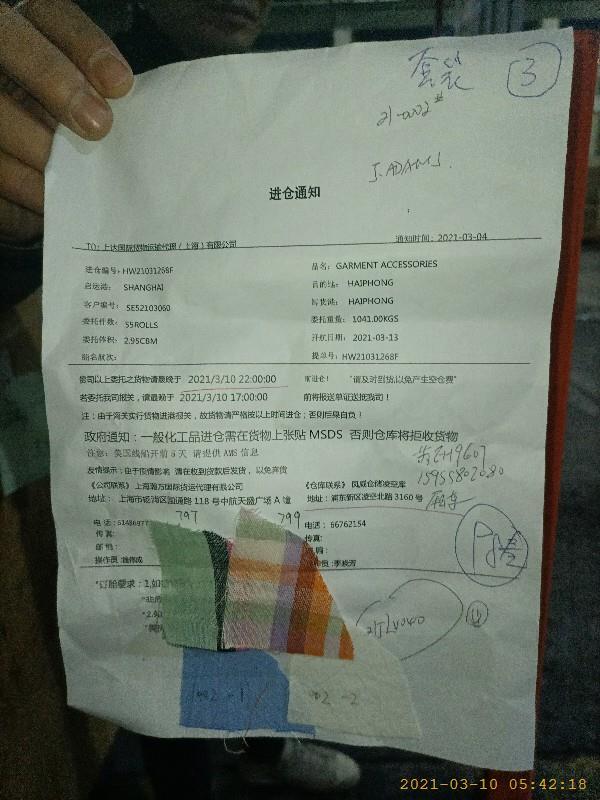 套装 ③
21-002#
J.ADAMS.
进仓通知
TO：上达国际货物运输代理（上海）有限公司 通知时间：2021-03-04
进仓编号：HW21031268F 品名： GARMENT ACCESSORIES
启运港： SHANGHAI 目的地： HAIPHONG
客户编号： SE52103060 卸货港： HAIPHONG
委托件数： 55ROLLS 委托重量： 1041.00KGS
委托体积： 2.95CBM 开航日期： 2021-03-13
船名航次： 提单号：HW21031268F
贵司以上委托之货物请最晚于 2021/3/10 22:00:00 前进仓！ "请及时到货,以免产生空仓费"
若委托我司报关，请最晚于 2021/3/10 17:00:00 前将报送单证送抵我司！
注：由于海关实行货物进港报关，故货物请严格按以上时间进仓；否则后果自负！
政府通知：一般化工品进仓需在货物上张贴 MSDS 否则仓库将拒收货物
注意：美国线船开前 5 天 请提供 AMS 信息
友情提示：由于疫情影响 请在收到货款后发货，以免弃货
《公司联系》上海瀚万国际货运代理有限公司 《仓库联系》凤威仓储凌空库
地址： 上海市 国通路 118 号中航天盛广场 A 幢 地址：浦东新区凌空北路 3160 号
15955802080
797 799
电话：51486977 电话： 66762154
传真： 传真：
邮箱：
操作员 操作员：季晓芳
002-1 002-2
2021-03-10 05:42:18